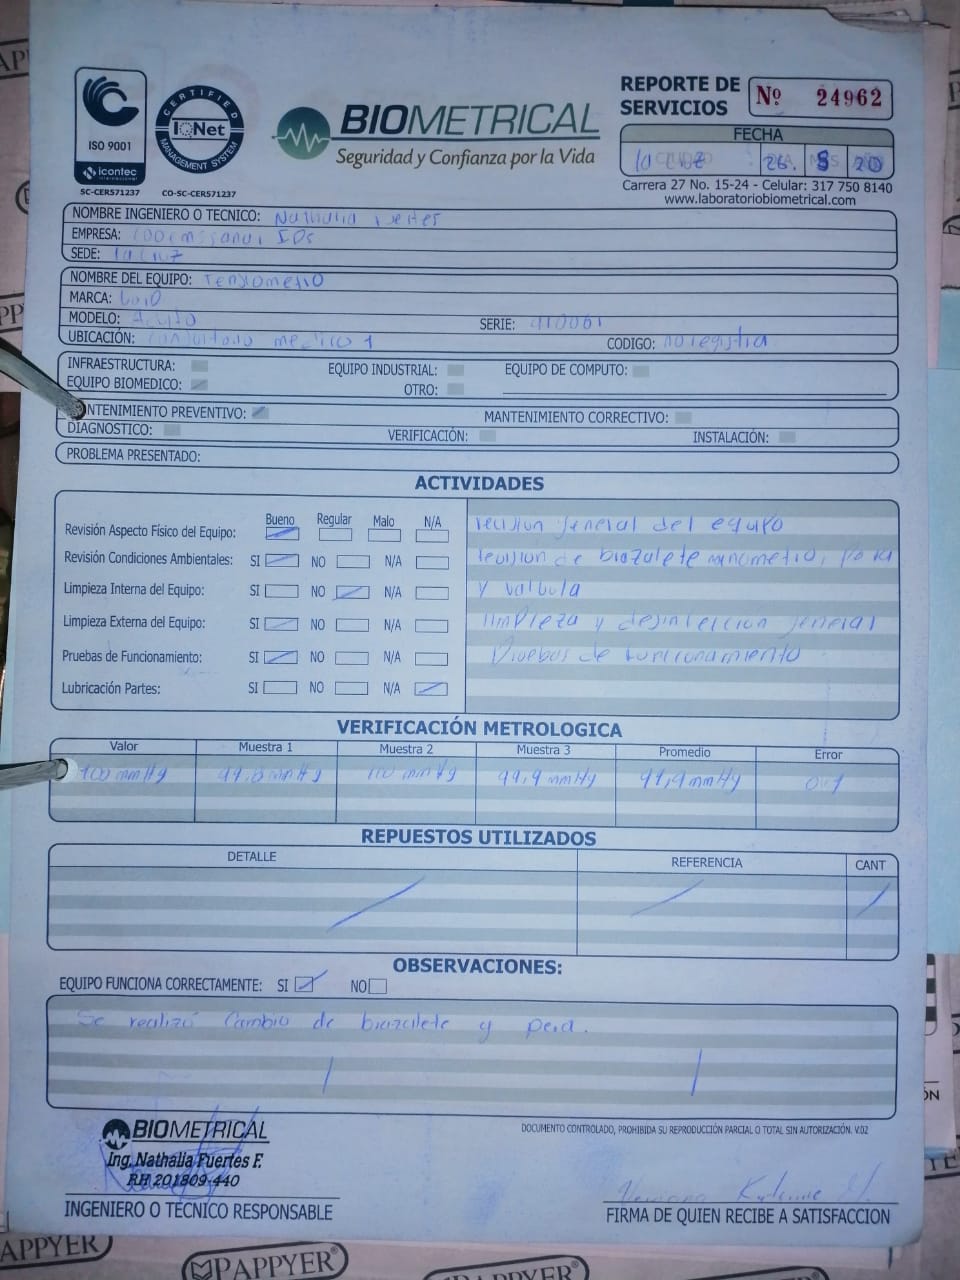 CERTIFIED
IQNet
MANAGEMENT SYSTEM
ISO 9001
icontec
internacional
SC-CER571237 CO-SC-CER571237
BIOMETRICAL
Seguridad y Confianza por la Vida
REPORTE DE
SERVICIOS
Nº 24962
FECHA
la cruz 26. 5 20
Carrera 27 No. 15-24 - Celular: 317 750 8140
www.laboratoriobiometrical.com
NOMBRE INGENIERO O TECNICO: Nathalia
EMPRESA: IPS
SEDE: la cruz
NOMBRE DEL EQUIPO: Tensiometro
MARCA:
MODELO: Adulto SERIE: 910061
UBICACIÓN: consultorio medico 1 CODIGO: no registra
INFRAESTRUCTURA: EQUIPO INDUSTRIAL: EQUIPO DE COMPUTO:
EQUIPO BIOMEDICO: OTRO:
NTENIMIENTO PREVENTIVO: MANTENIMIENTO CORRECTIVO:
DIAGNOSTICO: VERIFICACIÓN: INSTALACIÓN:
PROBLEMA PRESENTADO:
ACTIVIDADES
Bueno Regular Malo N/A
Revisión Aspecto Físico del Equipo:
Revisión Condiciones Ambientales: SI NO N/A
Limpieza Interna del Equipo: SI NO N/A
Limpieza Externa del Equipo: SI NO N/A
Pruebas de Funcionamiento: SI NO N/A
Lubricación Partes: SI NO N/A
revision general del equipo
revision de brazalete manometro, pera
y valbula
limpieza y desinfeccion general
Pruebas de funcionamiento
VERIFICACIÓN METROLOGICA
Valor Muestra 1 Muestra 2 Muestra 3 Promedio Error
100 mmHg 99,8 mmHg 100 mmHg 99,9 mmHg 99,9 mmHg 0.1
REPUESTOS UTILIZADOS
DETALLE REFERENCIA CANT
OBSERVACIONES:
EQUIPO FUNCIONA CORRECTAMENTE: SI NO
Se realizó cambio de brazalete y pera.
BIOMETRICAL
Ing. Nathalia Fuertes F.
RH 201809-440
INGENIERO O TECNICO RESPONSABLE
DOCUMENTO CONTROLADO, PROHIBIDA SU REPRODUCCIÓN PARCIAL O TOTAL SIN AUTORIZACIÓN. V.02
FIRMA DE QUIEN RECIBE A SATISFACCION
APPYER
PAPPYER
PAPPYER